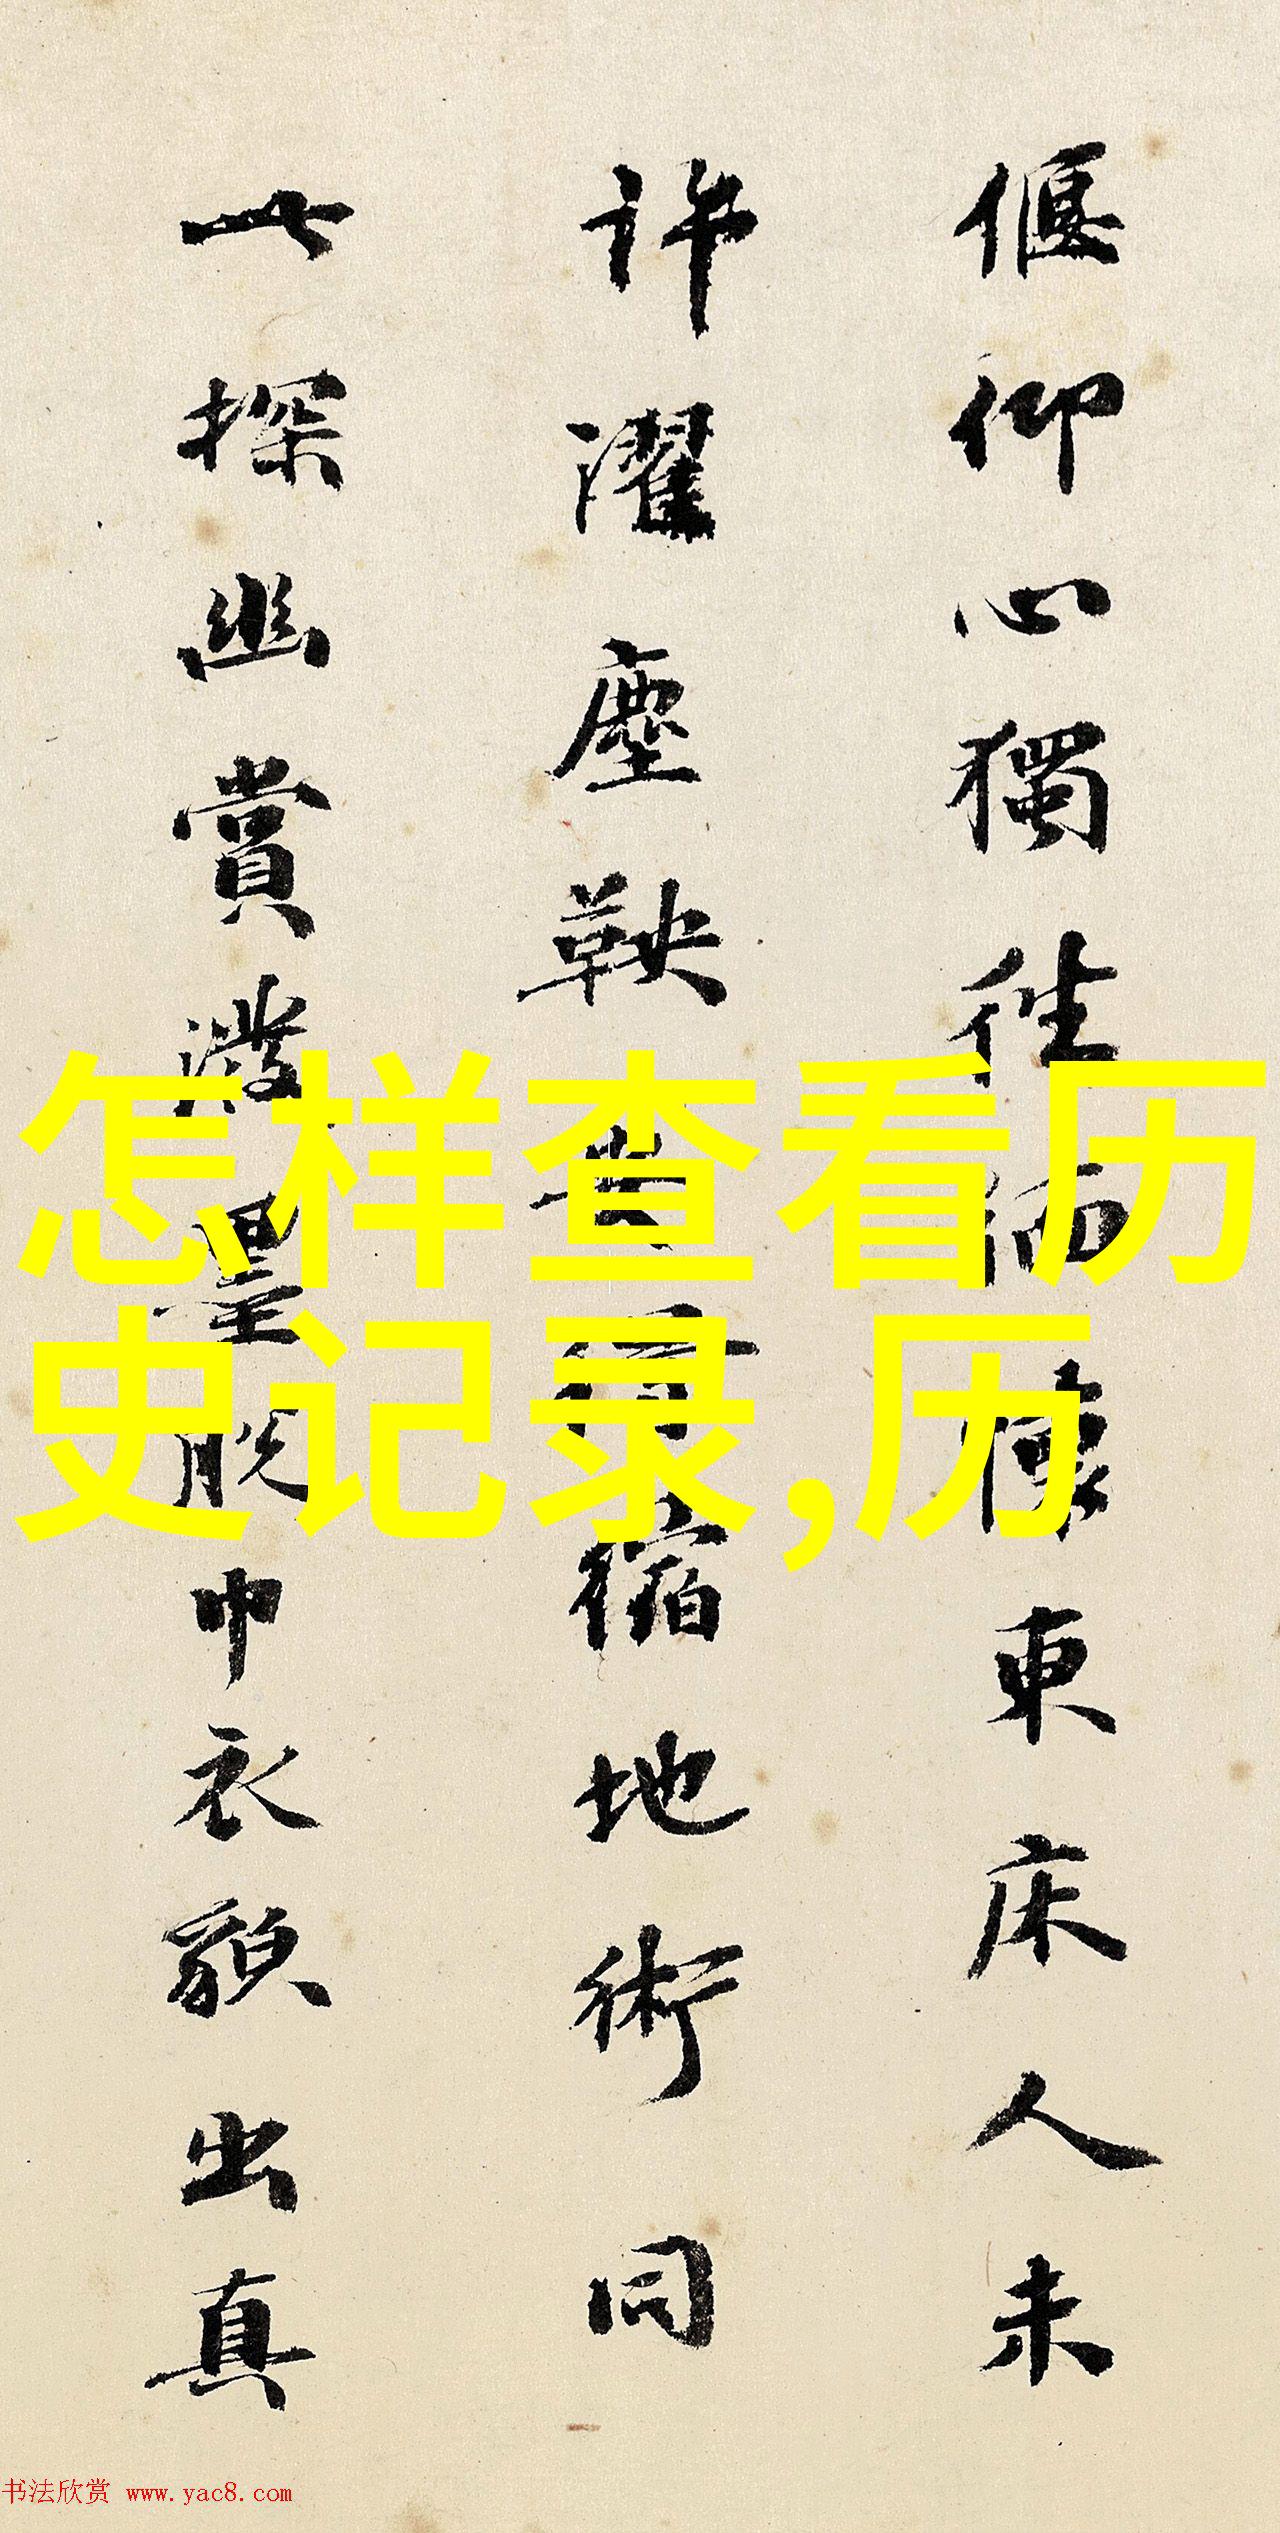 偃仰心獨往緬懷東床人未
許濯塵鞅安得縮地術同
此探幽賞潑墨脫巾衣顏出真
怎样查看历
史记录,历
书法欣赏 www.yac8.com